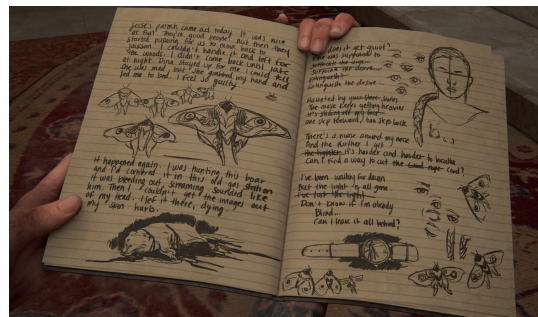 Jesse's parents came out today. It was nice
at first. They're good people. But then they
started pushing for us to move back to
Jackson. I couldn't handle it and left for
the woods. I didn't come back until late
at night. Dina stayed up for me. I could tell
she was mad, but she grabbed my hand and
led me to bed. I feel so guilty
It happened again. I was hunting this boar
and I'd cornered it in this old gas station
it was bleeding out, screaming. Sounded like
him. Then I couldn't get the images out
of my head. I left it there, dying.
My skin hurts
does it get quiet?
was supposed to
Surpress the desire
extinguish the desire
Haunted by your
The muse keeps getting heavier
it's sliding off my back
one step forward, two step back
There's a noose around my neck
And the further I get
the tighter it's harder and harder to breathe
Can I find a way to cut the cord?
I've been waiting for dawn
But the light is all gone
I've lost the light
Don't know if I'm already
Blind...
Can I leave it all behind?